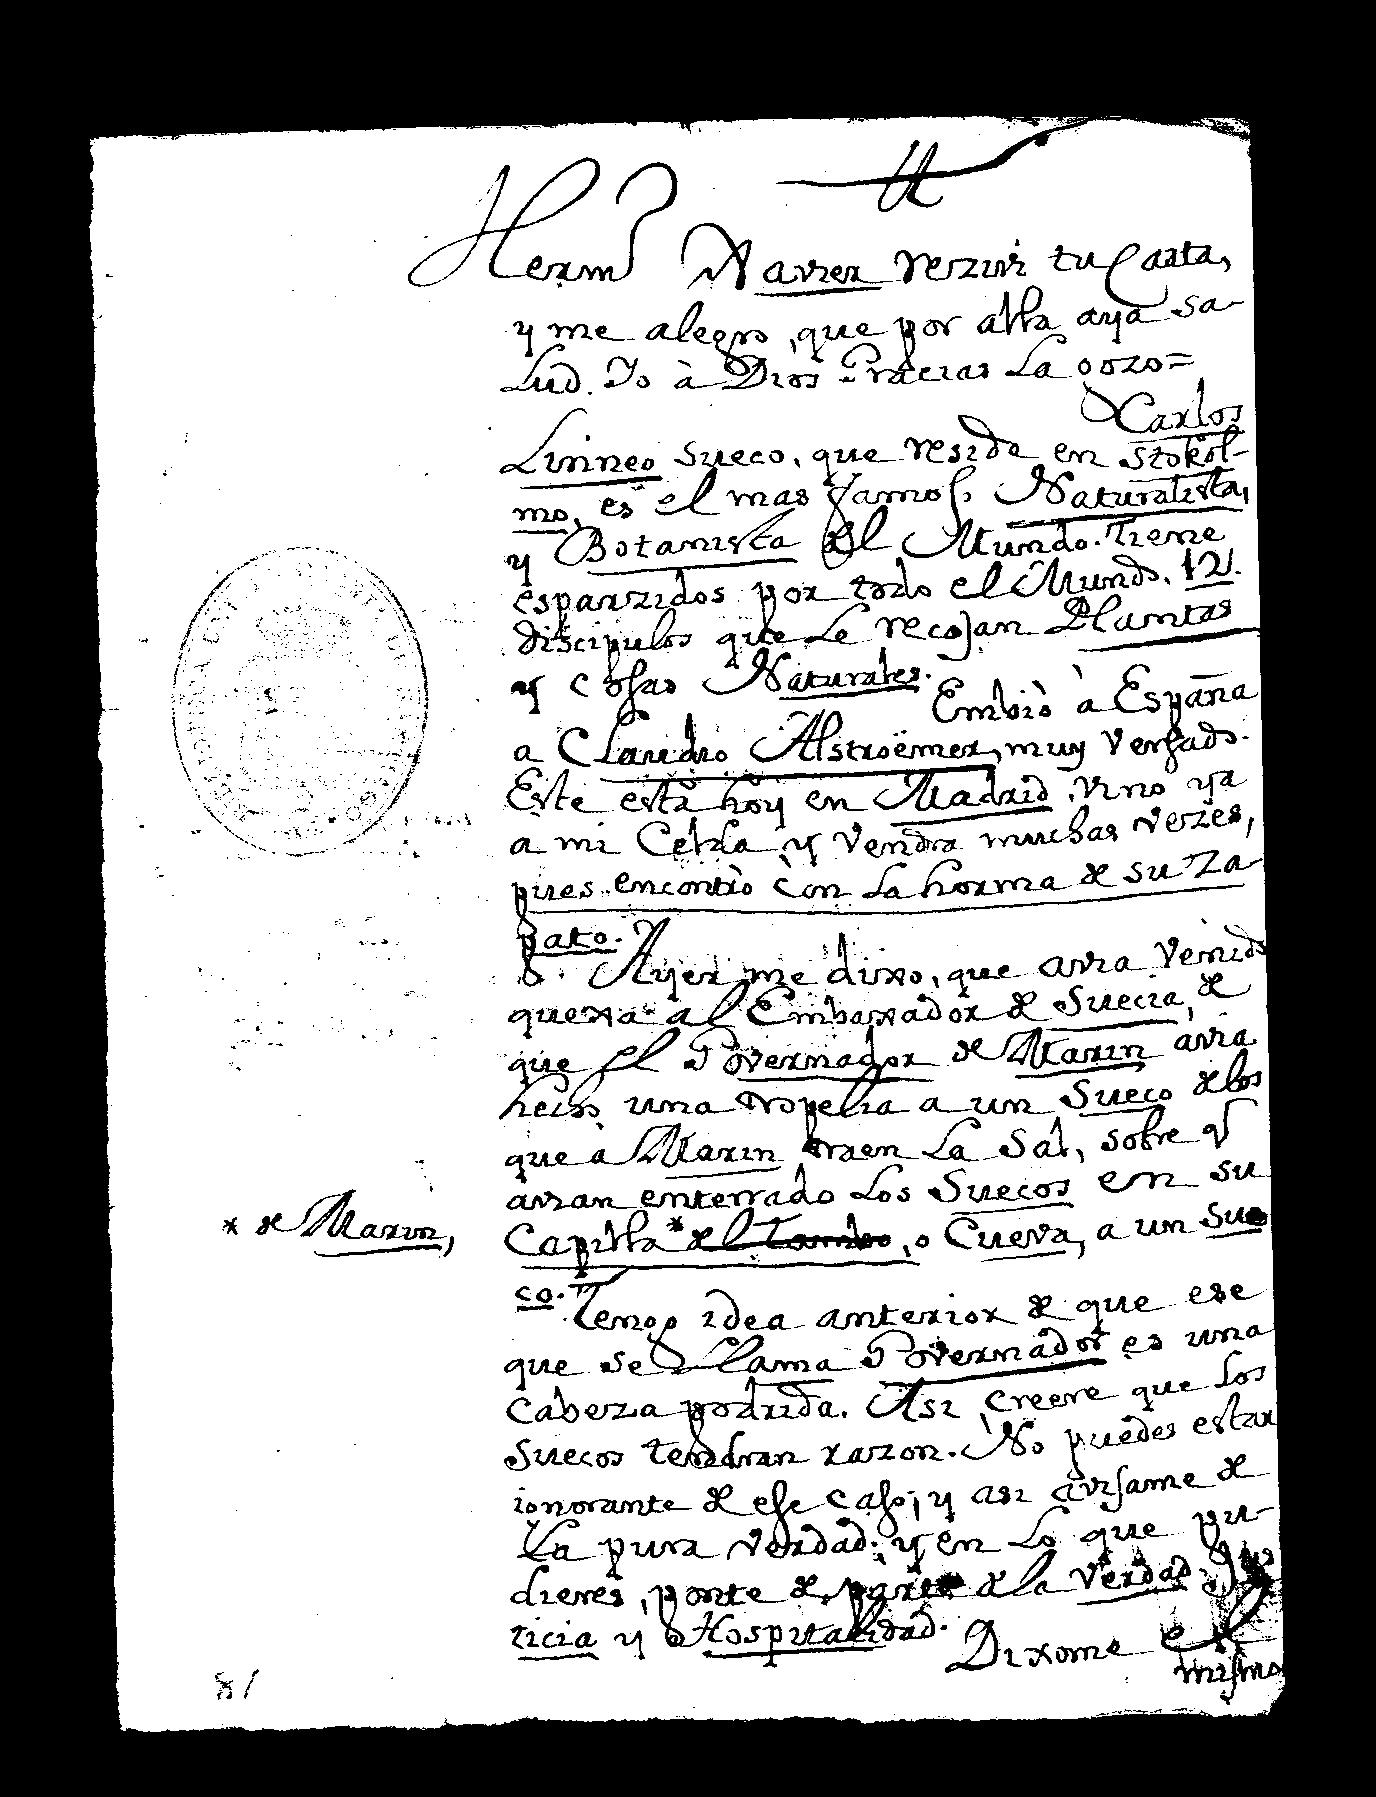 Herm.º Xavier rezivi tu Carta,
y me alegro, que por alla aya sa-
lud. Yo à Dios Gracias La gozo=
Carlos
Linneo Sueco, que reside en Stokol-
mo, es el mas famoso Naturalista,
y Botanista del Mundo. Tiene
esparzidos por todo el Mundo. 12.
discipulos que Le recojan Plantas
y cosas Naturales.
Embiò à España
a Claudio Alstroëmer, muy Versado.
Este està hoy en Madrid, vino ya
a mi Celda y Vendra muchas vezes,
pues encontrò con La horma de su Za-
pato.
Ayer me dixo, que avia Venido
quexa al Embaxador de Suecia, de
que el Governador de Marin avia
hecho una tropelia a un Sueco de los
que à Marin traen La Sal, sobre q
avian enterrado Los Suecos en su
* de Marin,
Capilla * del Tambo, o Cueva, a un Sue
co.
Tengo idea anterior de que ese
que se Llama Governador es una
Cabeza podrida. Asi creere que Los
Suecos tendran razon. No puedes estar
ignorante de ese caso; y asi avisame de
La pura verdad; y en Lo que pu-
dieres, ponte de parte de la Verdad, Jus
ticia y Hospitalidad.
Dixome el
mismo
81